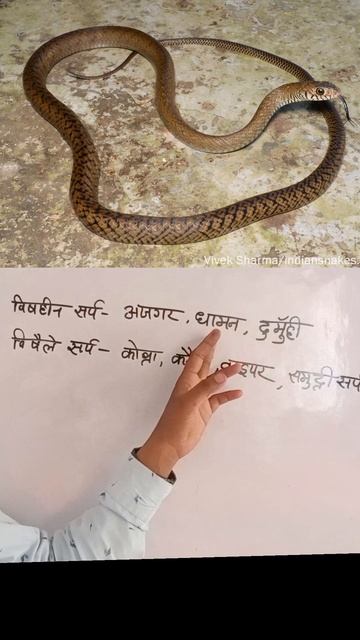 Vivek Sharma/indiansnakes.
विषहीन सर्प- अजगर, धामन, दुमुँही
विषैले सर्प- कोब्रा, समुद्री सर्प